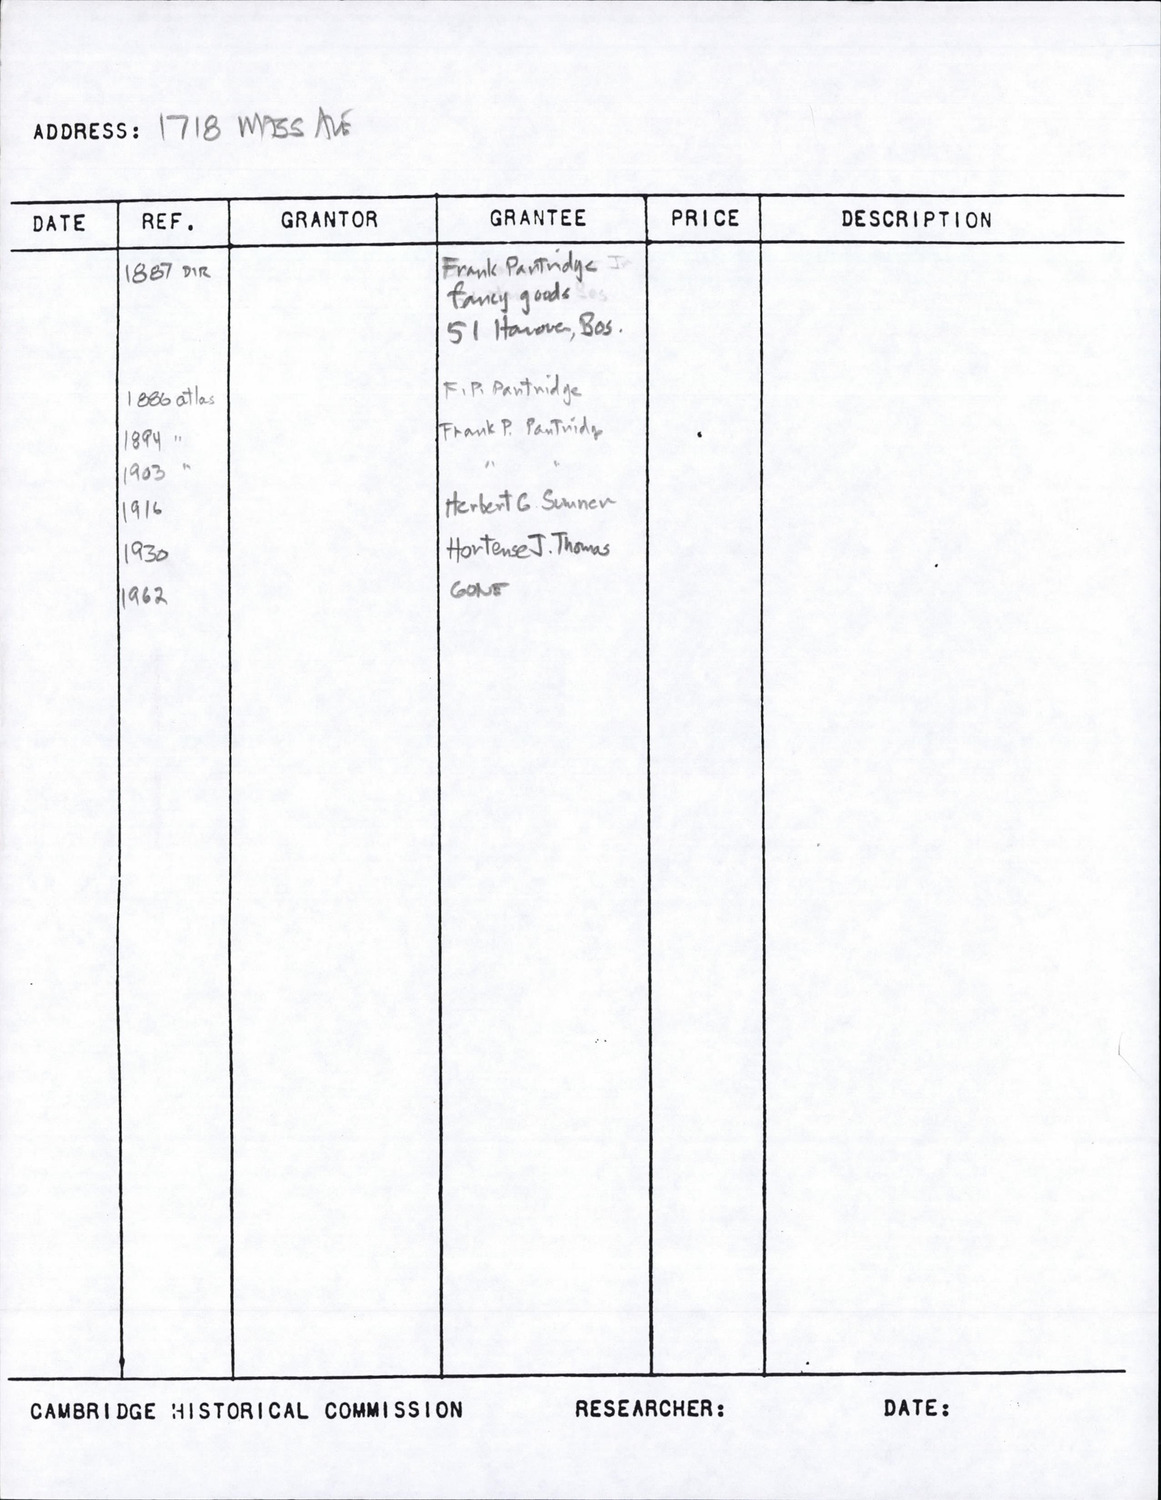 ADDRESS: 1718 MASS AVE
DATE REF. GRANTOR GRANTEE PRICE DESCRIPTION
1887 DIR Frank Partridge Jr
fancy goods
51 Hanover, Bos.
1886 atlas F.P. Partridge
1894 " Frank P. Partridge
1903 " " "
1916 Herbert G Sumner
1930 Hortense J. Thomas
1962 GONE
CAMBRIDGE HISTORICAL COMMISSION RESEARCHER: DATE: